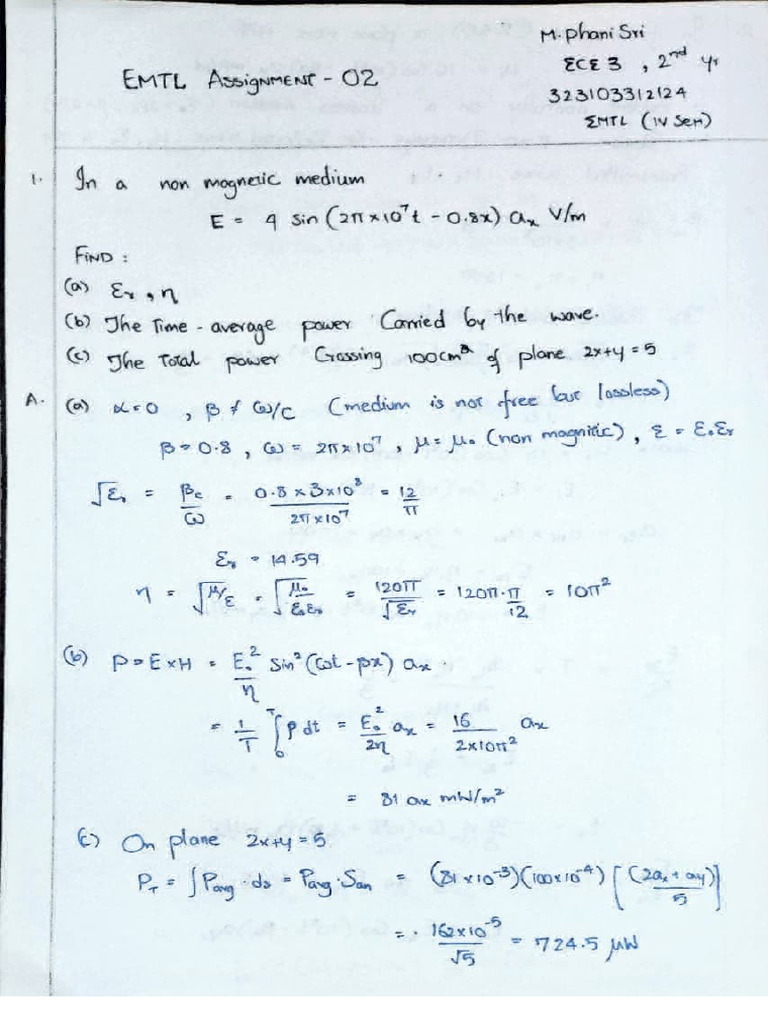 M. Phani Sri
ECE 3 , 2nd Yr
EMTL ASSIGNMENT - 02
323103312124
EMTL (IV SEM)
1. In a non magnetic medium
E = 4 sin (2π×10⁷t - 0.8x) aₓ V/m
FIND :
(a) εr , η
(b) The Time - average power Carried by the wave.
(c) The Total power Crossing 100cm² of plane 2x+y = 5
A. (a) α=0 , β ≠ ω/c (medium is not free but lossless)
β = 0.8 , ω = 2π×10⁷ , μ = μ₀ (non magnitic) , ε = ε₀εr
√εr = βc/ω = 0.8 × 3×10⁸ / 2π×10⁷ = 12/π
εr = 14.59
η = √μ/ε = √μ₀/ε₀εr = 120π/√εr = 120π·π/12 = 10π²
(b) P = E×H = E₀²/η sin² (ωt - βx) aₓ
= 1/T ∫₀ᵀ P dt = E₀²/2η aₓ = 16/2×10π² aₓ
= 81 aₓ mW/m²
(c) On plane 2x+y = 5
P_T = ∫Pavg · ds = Pavg · San = (81×10⁻³)(100×10⁻⁴) [(2aₓ + ay)/5]
= 162×10⁻⁵/√5 = 724.5 μW